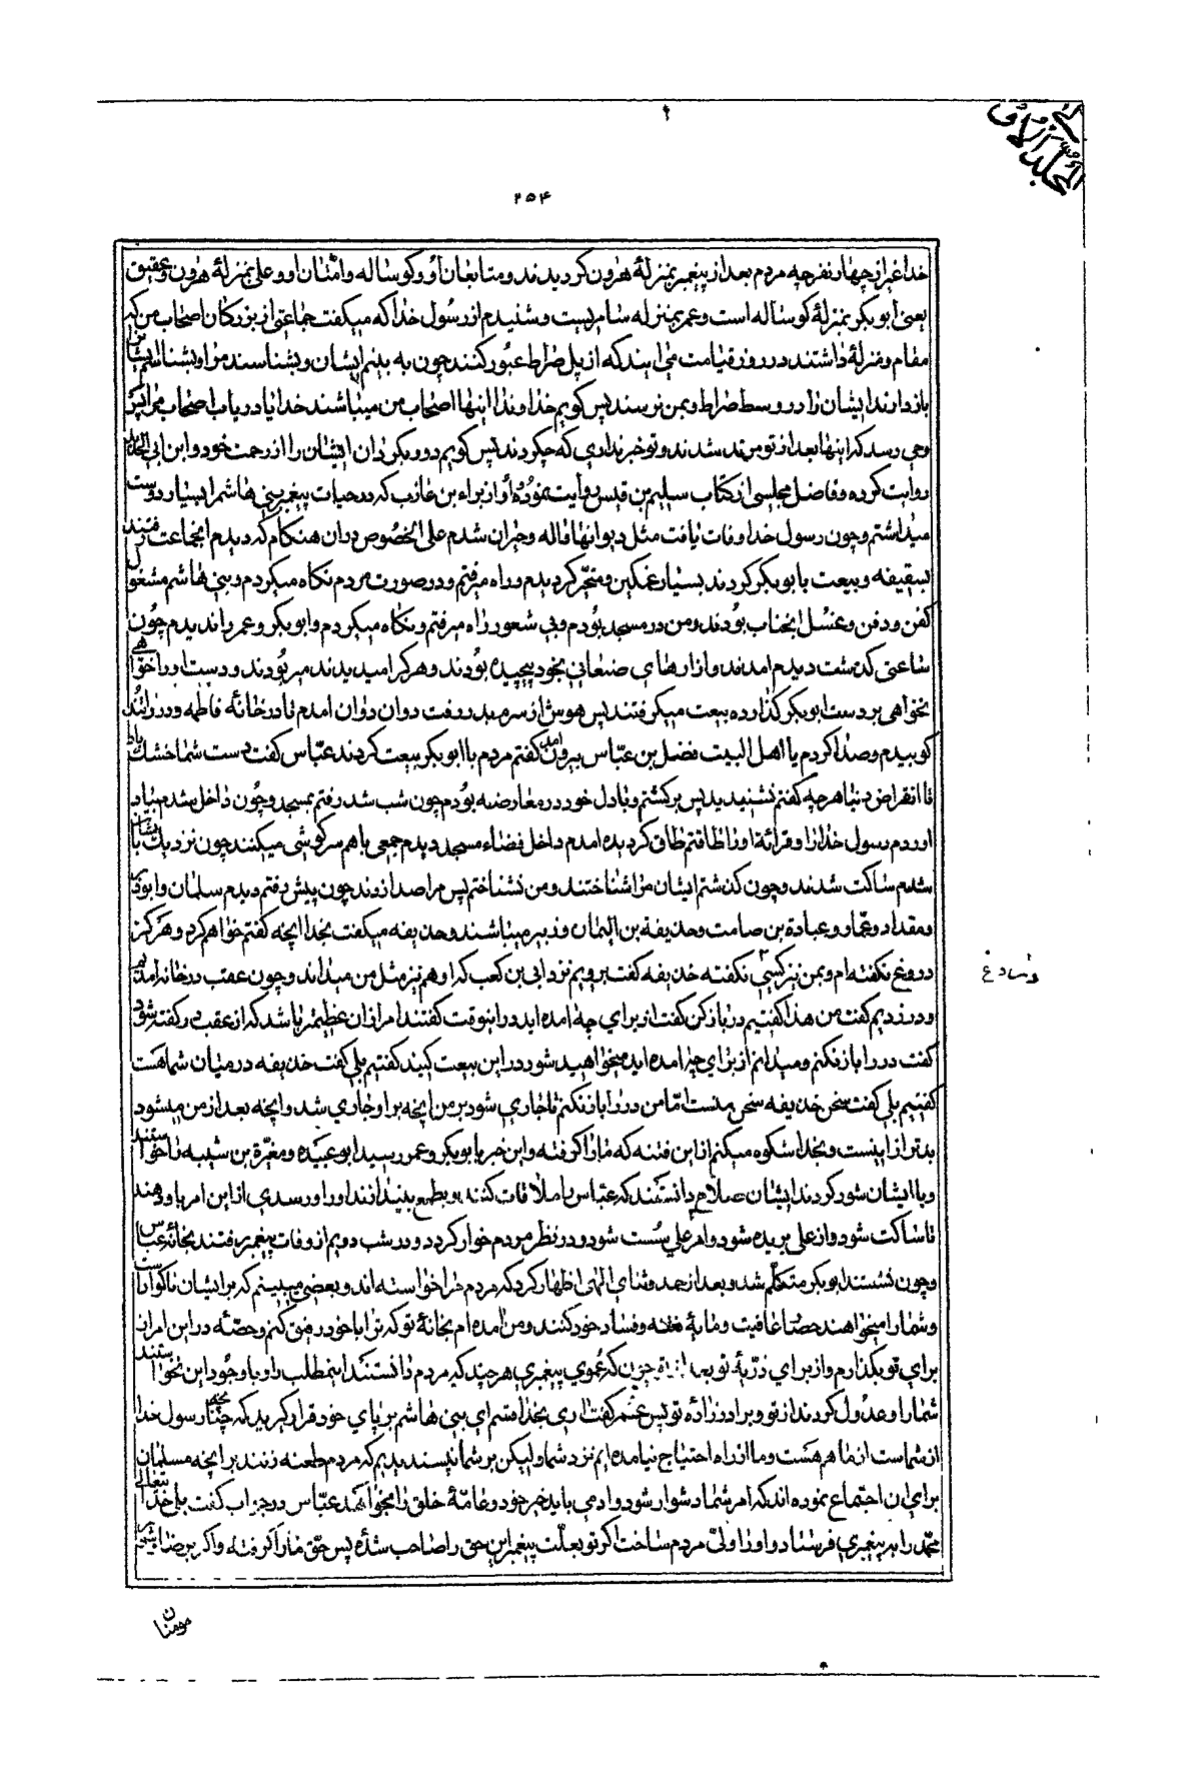 المجلد الاول
۲۵۴
خدا غیر از چهار نفر چه مردم بعد از پیغمبر بمنزلهٔ هرون کردیدند و متابعان او و کوساله و امتنان او و علی بمنزلهٔ هرون و عتیق
یعنی ابوبکر بمنزلهٔ کوساله است و عمر بمنزله سامریست و شنیدم از رسول خدا که میکفت جماعتی از بزرکان اصحاب من که
مقام و منزله داشتند در روز قیامت می ایند که از پل صراط عبور کنند چون به بینم ایشان و بشناسند مرا و بشناسم ایشانرا
بازدارند ایشان را در وسط صراط و بمن نرسند پس کویم خداوندا اینها اصحاب من میباشند خدایا دریاب اصحاب مرا پس
وحی رسد که اینها بعد از تو مرتد شدند و تو خبر نداری که چکردند پس کویم دور بکردان ایشان را از رحمت خود و ابن ابی الحدید
روایت کرده و فاضل مجلسی از کتاب سلیم بن قیس روایت نموده او از براء بن عازب که در حیات پیغمبر بنی هاشم را بسیار دوست
میداشتم و چون رسول خدا وفات یافت مثل دیوانها واله و حیران شدم علی الخصوص دران هنکام که دیدم انجماعت رفتند
بسقیفه و بیعت با ابوبکر کردند بسیار غمکین و متحیر کردیدم و راه میرفتم و در صورت مردم نکاه میکردم و بنی هاشم مشغول
کفن و دفن و غسل انجناب بودند و من در مسجد بودم و بی شعور راه میرفتم و نکاه میکردم و ابوبکر و عمر را ندیدم چون
ساعتی کذشت دیدم امدند و ازارهای صنعانی بخود پیچیده بودند و هر کرا میدیدند میربودند و دست او را خواهی
نخواهی بر دست ابوبکر کذارده بیعت میکرفتند پس هوش از سرم بدر رفت دوان دوان امدم تا در خانهٔ فاطمه و در را تند
کوبیدم و صدا کردم یا اهل البیت فضل بن عباس بیرون امد کفتم مردم با ابوبکر بیعت کردند عباس کفت دست شما خشک باد
تا انقراض دنیا هرچه کفتم نشنیدید پس برکشتم و با دل خود در معارضه بودم چون شب شد رفتم بمسجد و چون داخل شدم بیاد
اوردم رسول خدا را و قرائة او را طاقتم طاق کردیده امدم داخل فضاء مسجد دیدم جمعی با هم سرکوشی میکنند چون نزدیک بایشان
شدم ساکت شدند و چون کذشتم ایشان مرا شناختند و من نشناختم پس مرا صدا زدند چون پیش رفتم دیدم سلمان و ابوذر
و مقداد و عمار و عبادة بن صامت و حذیفة بن الیمان و زبیر میباشند و حذیفه میکفت بخدا انچه کفتم خواهم کرد و هرکز
دروغ نکفته ام و بمن نیز کسی نکفته حذیفه کفت برویم نزد ابی بن کعب که او هم نیز مثل من میداند و چون عقب در خانه امدیم
و در زدیم کفت من هذا کفتیم در باز کن کفت از برای چه امده اید در اینوقت کفتند امر ازان عظیمتر باشد که از عقب در کفته شود
کفت در را باز نکنم و میدانم از برای چه امده اید میخواهید شور در این بیعت کنید کفتیم بلی کفت حذیفه در میان شما هست
کفتیم بلی کفت سخن حذیفه سخن منست اما من در را باز نکنم تا جاری شود بر من انچه بر او جاری شد و انچه بعد از من میشود
بدتر از اینست و بخدا شکوه میکنم از این فتنه که ما را کرفته و این خبر بابوبکر و عمر رسید ابو عبیده و مغیرة بن شیبه را خواستند
و با ایشان شور کردند ایشان صلاح دانستند که عباس را ملاقات کنند و بطمع بیندازند او را و رسدی از این امر باو دهند
تا ساکت شود و از علی بریده شود و امر علی سست شود و در نظر مردم خوار کردد و در شب دویم از وفات پیغمبر رفتند بخانه عباس
و چون نشستند ابوبکر متکلم شد و بعد از حمد و ثنای الهی اظهار کرد که مردم مرا خواسته اند و بعضی میبینم که بر ایشان ناکوار است
و شما را میخواهند حصار عافیت و مایهٔ فتنه و فساد خود کنند و من امده ام بخانهٔ تو که ترا با خود رفیق کنم و حصهٔ در این امر از
برای تو بکذارم و از برای ذریهٔ تو بعد از تو چون که عموی پیغمبری هر چند که مردم دانستند اینمطلب را و با وجود این نخواستند
شما را و عدول کردند از تو و برادر زادهٔ تو پس عمر کفت اری بخدا قسم ای بنی هاشم بر پای خود قرار کیرید که چنانچه رسول خدا
از شماست از ما هم هست و ما از راه احتیاج نیامده ایم نزد شما و لیکن بر شما نپسندیدیم که مردم طعنه زنند بر انچه مسلمانان
برای ان اجتماع نموده اند که امر شما دشوار شود و ادمی باید خیر خود و عامهٔ خلق را بخواهد عباس در جواب کفت بلی خدایتعالی
محمد را به پیغمبری فرستاد و او را ولی مردم ساخت اکر تو بعلت پیغمبر این حق را صاحب شدهٔ پس حق ما را کرفته و اکر برضای
مومنان